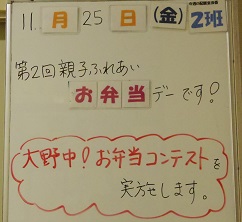 11月25日(金)2班
第2回親子ふれあい
お弁当デーです!
大野中!お弁当コンテストを
実施します。